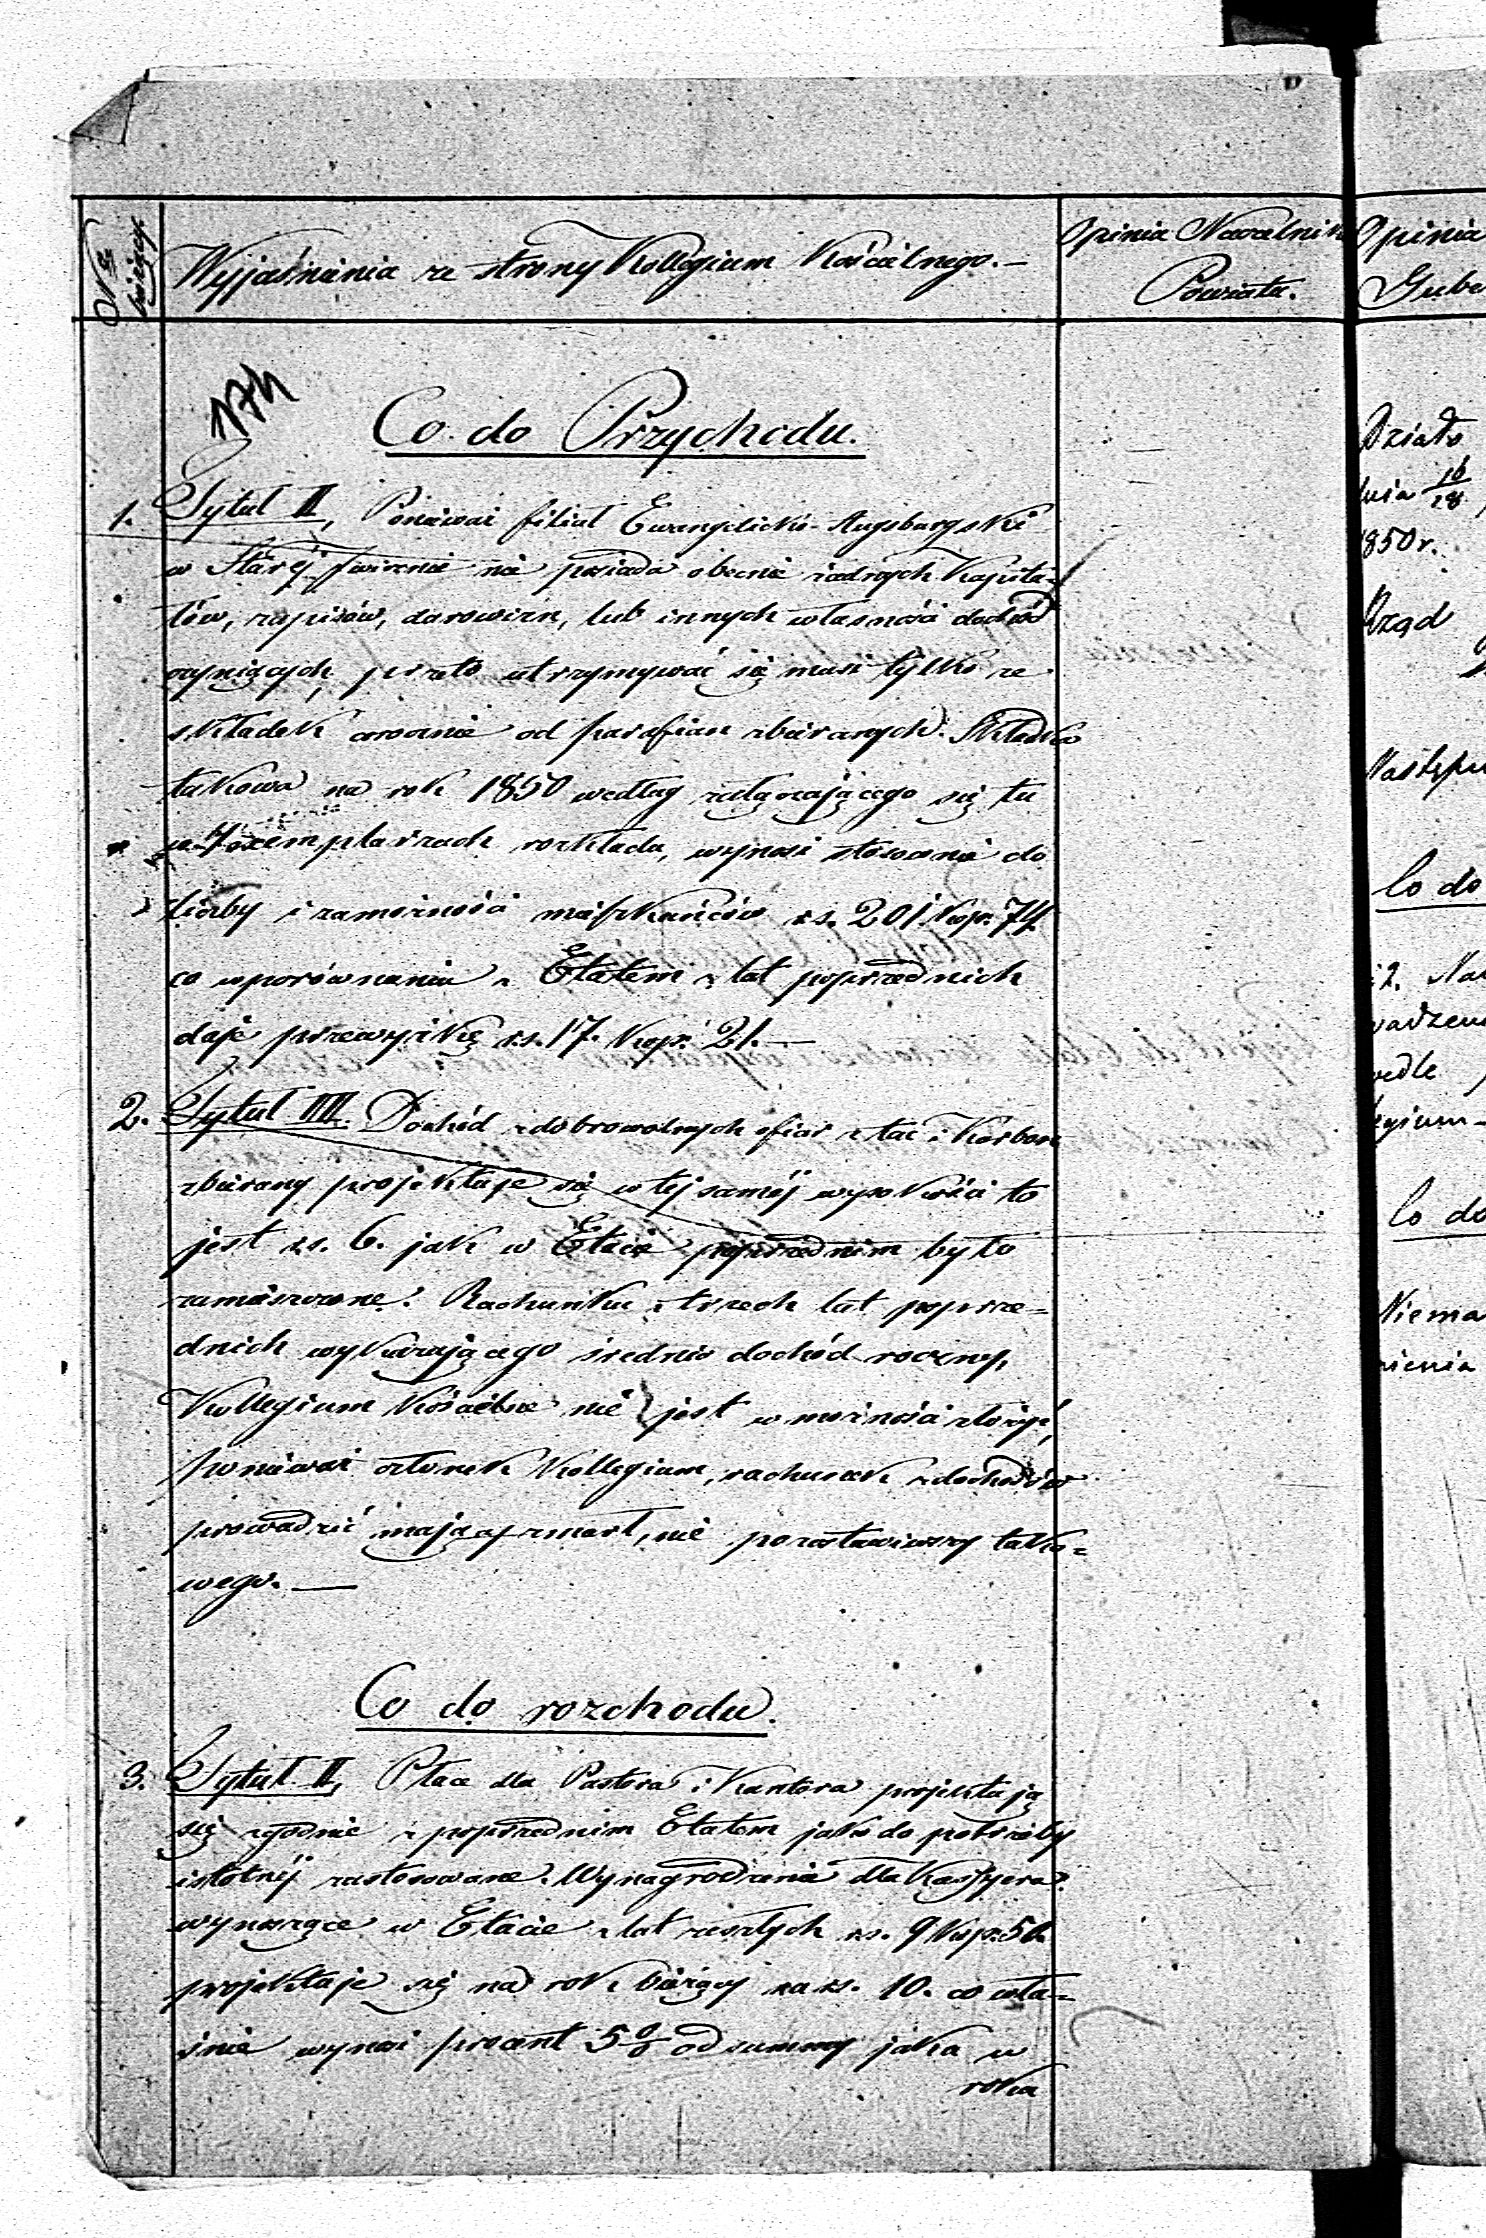 Nr bieżący
Wyjaśnienia ze strony Kollegium Kościelnego. –
Opinia Naczelnika
Powiatu.
Opinia
Gube
174
Co do Przychodu.
1. Tytuł II, Ponieważ filiał Ewangielicko-Augsburgski
w Starej nie posiada obecnie żadnych Kapita-
łów, zapisów, darowizn, lub innych własności dochód
czyniących, przeto utrzymywać się musi tylko ze
składek corocznie od parafian zbieranych. Składka
takowa na rok 1850 według załączającego się tu
w 4 exemplarzach rozkładu, wynosi stosownie do
liczby i zamożności mieszkańców rs. 201 kop. 74
co w porównaniu z Etatem z lat poprzednich
daje przewyżkę rs. 17. kop. 21. —
2. Tytuł IIII. Dochód z dobrowolnych ofiar z tac i Karbon
zbierany projektuje się w tej samej wysokości to
jest rs. 6. jak w Etacie poprzednim było
zamieszczone. Rachunku z trzech lat poprze-
dnich wykazującego średnio dochód roczny,
Kollegium Kościelne nie jest w możności złożyć,
ponieważ członek Kollegium, rachunek z dochodów
prowadzić mający zmarł, nie pozostawiwszy tako-
wego. —
Co do rozchodu.
3. Tytuł II, Płace dla Pastora i Kantora projektują
się zgodnie z poprzednim Etatem jako do potrzeby
istotnej zastosowane. Wynagrodzenie dla Kassyera
wynoszące w Etacie z lat zeszłych rs. 9 kop. 50
projektuje się na rok bieżący na rs. 10. co wła-
śnie wynosi procent 5% od summy jaka w
roku
Działo
dnia 16/28
1850 r.
Rząd
Następu
Co do
i 2. Na
wadzeni
wedle
legium-
Co do
Niema
nienia